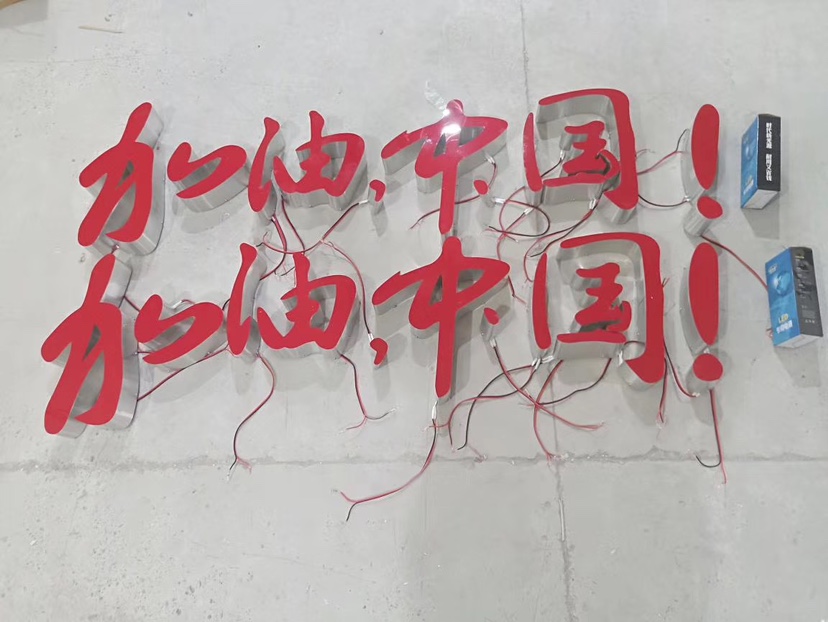 加油,中国!
加油,中国!
LED